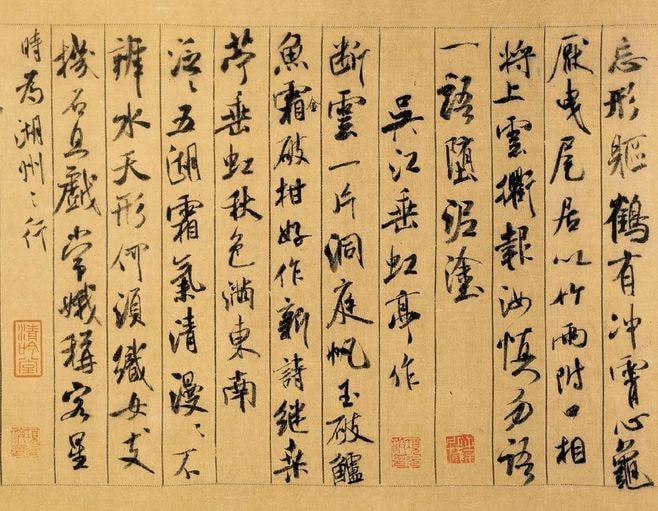 忘形軀鶴有冲霄心龜
厭曳尾居以竹兩附口相
將上雲衢報汝慎勿語
一語墮泥塗
吳江垂虹亭作
断雲一片洞庭帆玉破鱸
魚霜金破柑好作新詩継桒
苧垂虹秋色滿東南
泛〻五湖霜氣清漫〻不
辨水天形何須織女支
機石且戲常娥稱客星
時為湖州之行
清吟堂